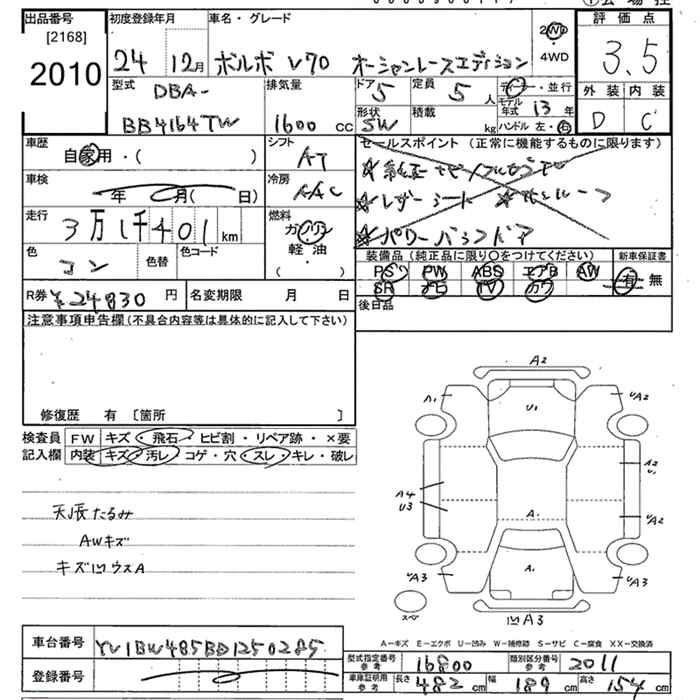 出品番号
[2168]
2010
初度登録年月
24 12月
車名・グレード
ボルボ V70 オーシャンレースエディション
2WD
4WD
評価点
3.5
外装 内装
D C
型式
DBA-
BB4164TW
排気量
1600 cc
ドア
5
定員
5 人
形状
SW
積載
kg
ディーラー・並行
モデル年式 13 年
ハンドル 左・右
車歴
自家用・( )
シフト
AT
セールスポイント (正常に機能するものに限ります)
レザーシート
パワーバックドア
車検
年 月( 日)
冷房
AAC
走行
3万1千401km
燃料
ガソリン
軽油
( )
色
コン
色替
色コード
装備品(純正品に限り〇をつけてください)
PS PW ABS エアB AW
SR ナビ TV カワ
新車保証書
有 無
後日品
R券 ¥24830 円
名変期限 月 日
注意事項申告欄(不具合内容等は具体的に記入して下さい)
修復歴 有 〔箇所 〕
検査員
記入欄
FW キズ・飛石・ヒビ割・リペア跡・×要
内装 キズ・汚レ・コゲ・穴・スレ・キレ・破レ
天張たるみ
AWキズ
キズ凹ウスA
A2
A1
U1
UA2
A2
U1
A4
U3
A1
UA2
UA3
A1
UA3
スペア
凹A3
A-キズ E-エクボ U-凹み W-補修跡 S-サビ C-腐食 XX-交換済
車台番号
YV1BW485BD1250285
登録番号
型式指定番号
参考
16800
類別区分番号
参考
2011
車庫証明用
参考
長さ 482 cm
幅 189 cm
高さ 154 cm